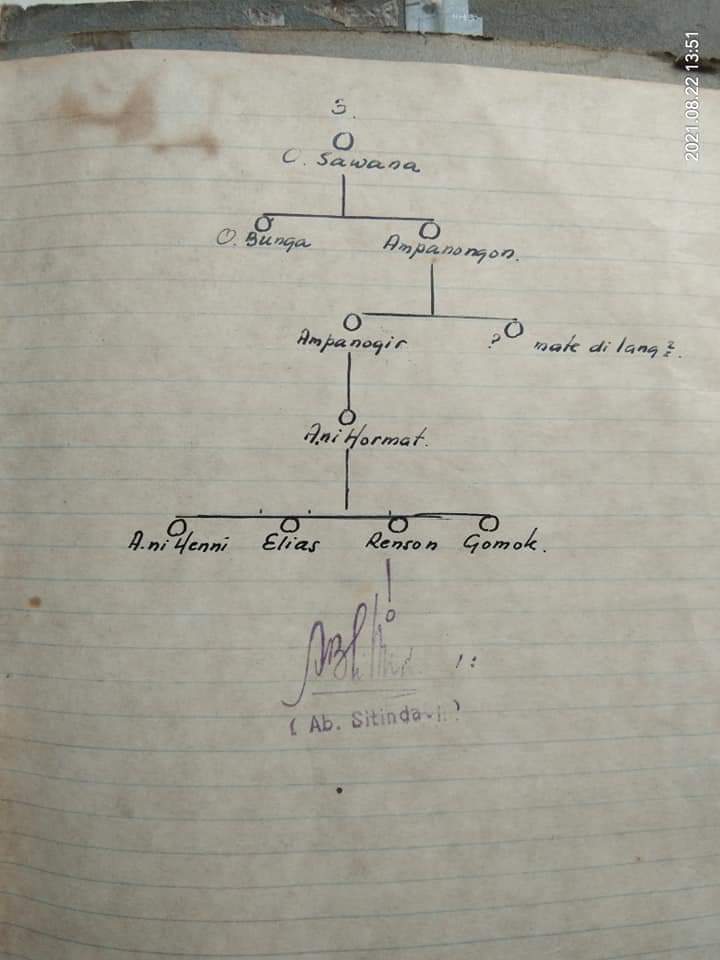 3.
O. Sawana
O. Bunga
Ampanongon.
Ampanogir
? mate di lang²₂.
A.ni Hormat.
A.ni Henni Elias Renson Gomok.
( Ab. Sitinda
2021.08.22 13:51